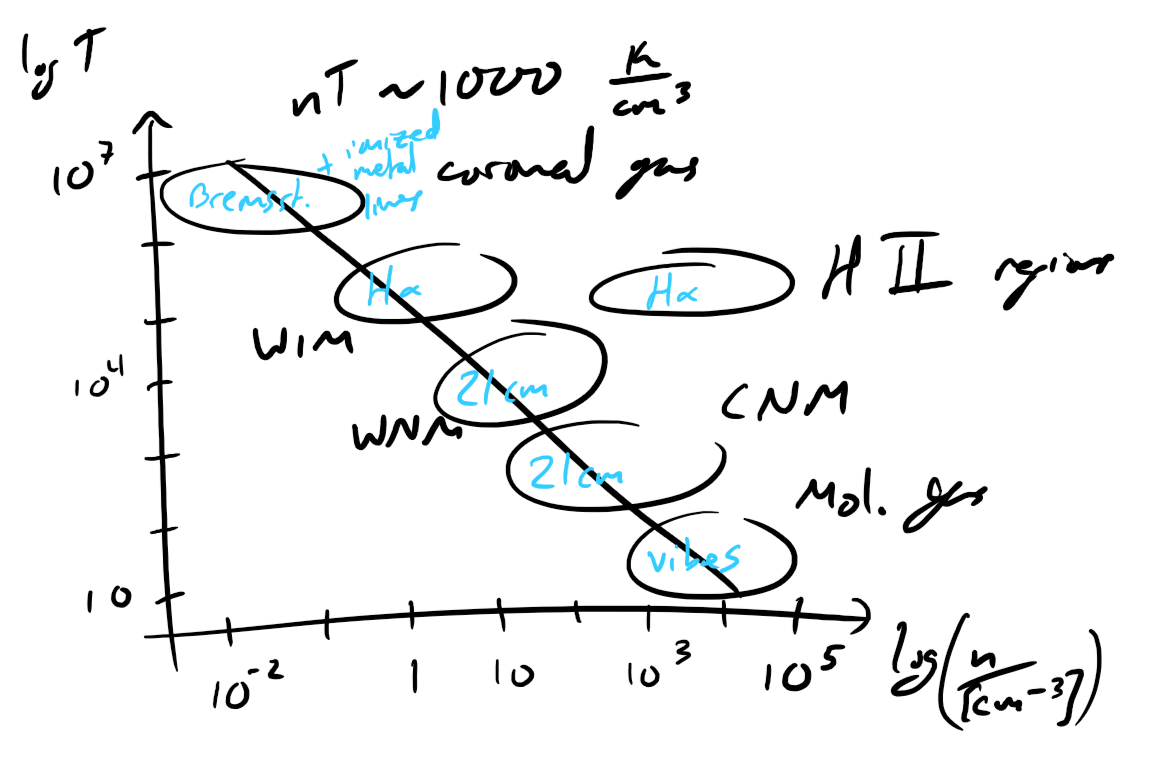 log T
nT ~ 1000 K/cm³
10⁷
Bremsst.
+ ionized
metal
lines
coronal gas
Hα
Hα
H II regions
WIM
10⁴
21 cm
CNM
WNM
21 cm
Mol. gas
vibes
10
10⁻²
1
10
10³
10⁵
log(n/[cm⁻³])